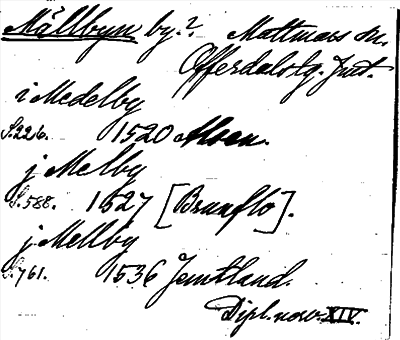 Mällbyn by.? Mattmars sn.
Offerdals tg. Jmt.
i Medelby
S.226. 1520
j Melby
S.588. 1527 [Brunflo].
j Mellby
S.761. 1536 Jemtland.
Dipl. norv. XIV.